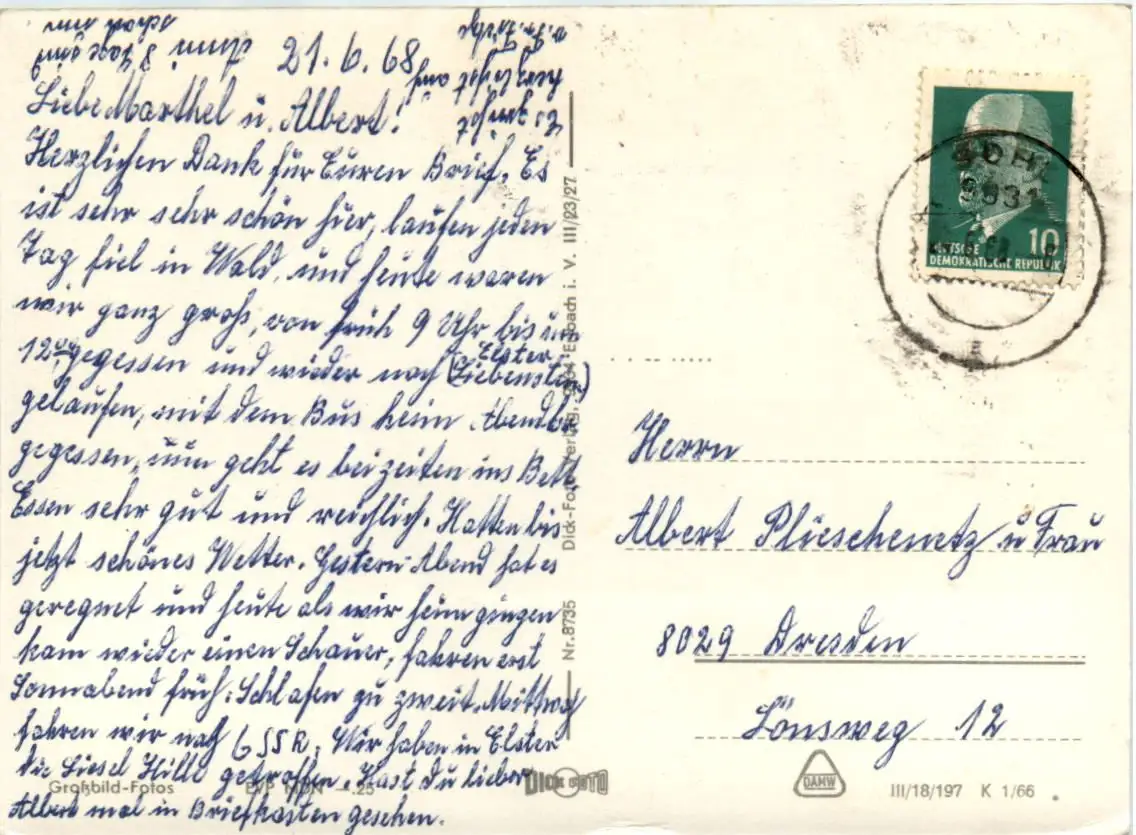 21.6.68
Liebe Marthel u. Albert!
Herzlichen Dank für Euren Brief. Es
ist sehr sehr schön hier, laufen jeden
Tag fiel in Wald, und heute waren
wir ganz groß, von früh 9 Uhr bis um
12 Uhr gegessen und wieder nach Elster
(Liebenstein)
gelaufen, mit dem Bus heim Abendbr
gegessen, nun geht es beizeiten ins Bett
Essen sehr gut und reichlich. Hatten bis
jetzt schönes Wetter. Gestern Abend hat es
geregnet und heute als wir heim gingen
kam wieder einen Schauer, fahren erst
Sonnabend früh. Schlafen zu zweit. Mittwoch
fahren wir nach
Wir haben in Elster
die Liesel Hille getroffen. Hast Du lieber
Albert mal in Briefkasten gesehen.
Es grüßt
herzlichst
Großbild-Fotos
EVP MDN -.25
DICK FOTO
Nr. 8735
Dick-Foto-Verlag, Erlbach i. V. III/23/27
DEUTSCHE
DEMOKRATISCHE REPUBLIK
10
Herrn
Albert Plüschenetz u Frau
8029 Dresden
Lönsweg 12
DAMW
III/18/197 K 1/66